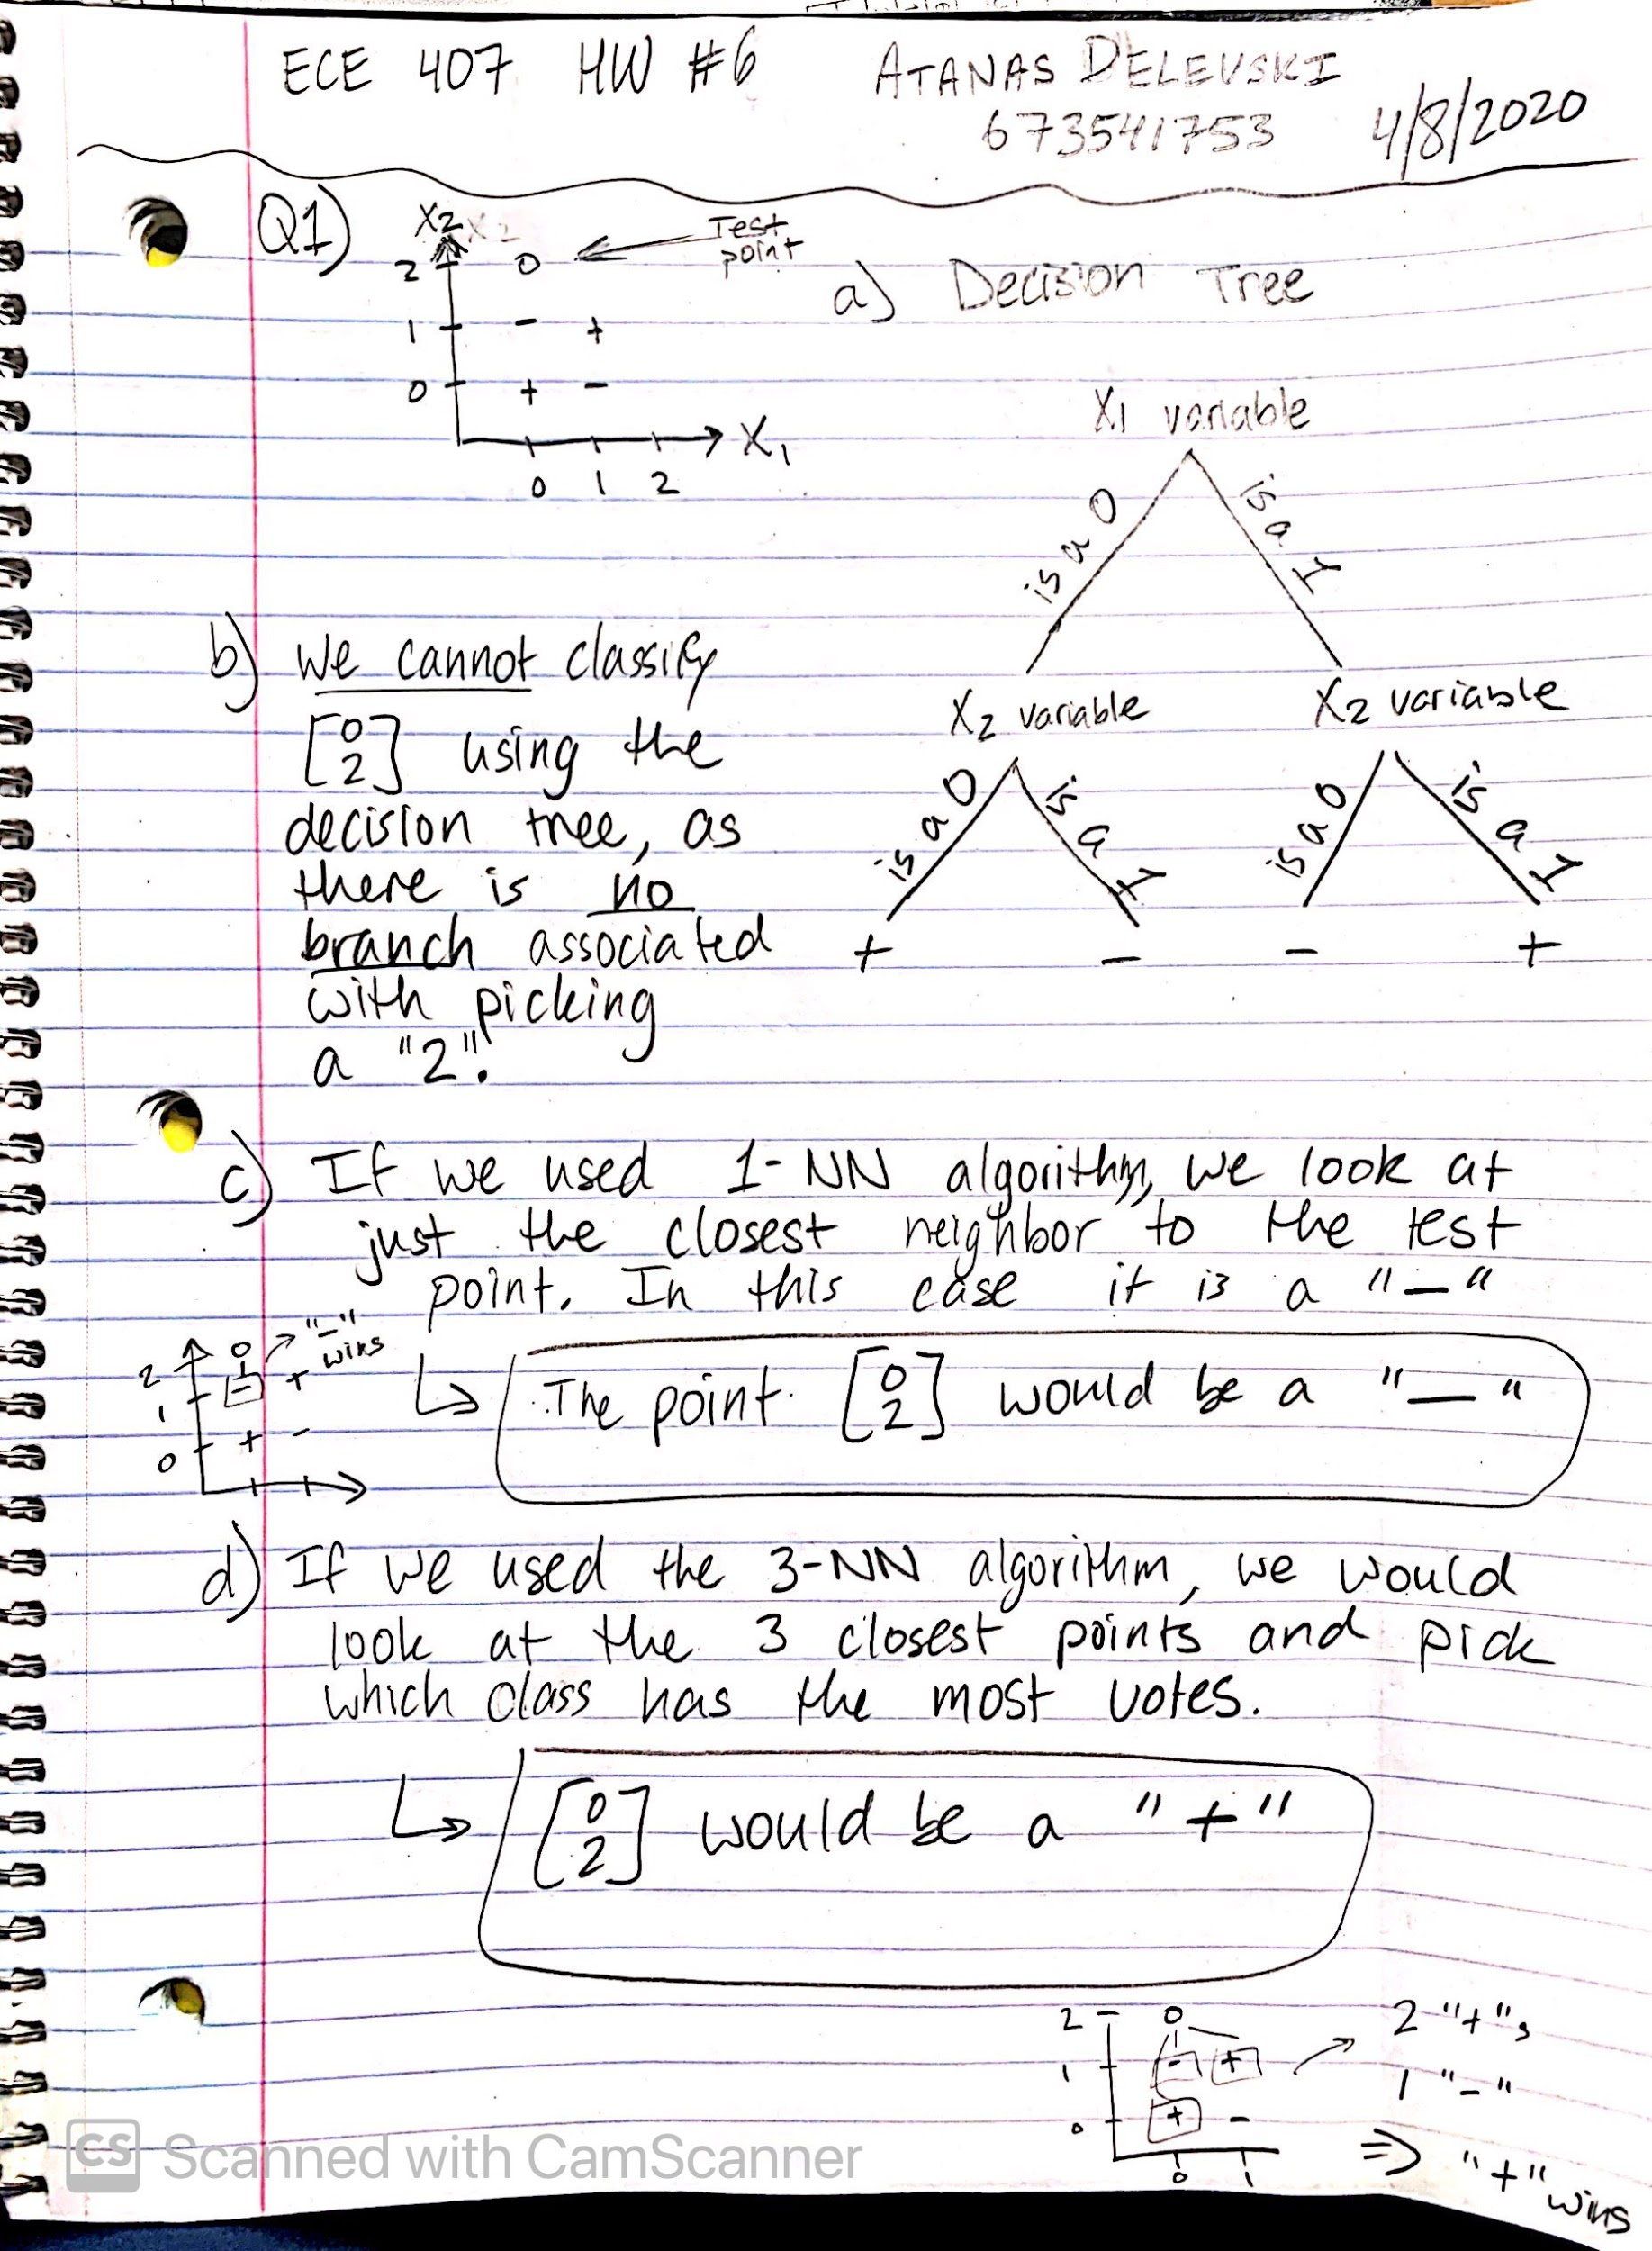 ECE 407 HW #6 ATANAS DELEVSKI
673541753 4/8/2020
Q1)
X2 X2
2 0 ← Test point
1 - +
0 + -
→ X1
0 1 2
a) Decision Tree
X1 variable
is a 0 is a 1
X2 variable X2 variable
is a 0 is a 1 is a 0 is a 1
+ - - +
b) we cannot classify
[0 2] using the
decision tree, as
there is no
branch associated
with picking
a "2".
c) If we used 1-NN algorithm, we look at
just the closest neighbor to the test
point. In this case it is a "-"
2 0 → "-" wins
1 - +
0 + -
↳ ∴ The point [0 2] would be a "-"
d) If we used the 3-NN algorithm, we would
look at the 3 closest points and pick
which class has the most votes.
↳ [0 2] would be a "+"
2 0
1 - +
0 + -
0 1
2 "+"s
1 "-"
⇒ "+" wins
CS Scanned with CamScanner